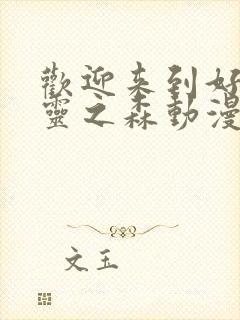 歡迎来到好
靈之森動漫
文玉